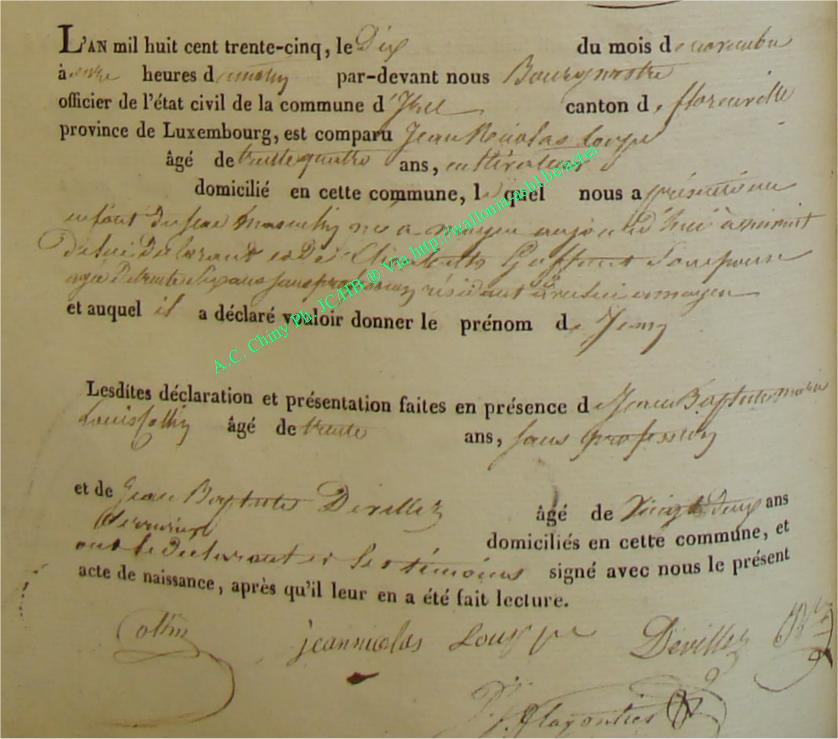 L'AN mil huit cent trente-cinq, le Dix du mois de novembre
à onze heures du matin par-devant nous Bourgmestre
officier de l'état civil de la commune d'Izel canton de florenville
province de Luxembourg, est comparu Jean Nicolas Louppe
âgé de trente quatre ans, cultivateur
domicilié en cette commune, lequel nous a présenté un
enfant du sexe masculin né à moyen aujourd'hui à minuit
de lui déclarant et de Elisabeth Goffinet son épouse
agée de trente six ans sans profession résidant avec lui à moyen
et auquel il a déclaré vouloir donner le prénom de Jean
Lesdites déclaration et présentation faites en présence de Jean Baptiste
Louis Collin âgé de trente ans, sans profession
et de Jean Baptiste Devillez âgé de vingt deux ans
domiciliés en cette commune, et
ont le déclarant et les témoins signé avec nous le présent
acte de naissance, après qu'il leur en a été fait lecture.
Collin jean nicolas Louppe Devillez
A.C. Chiny Ph. JCAHB ® Via http://wallonia-asbl.be/actes